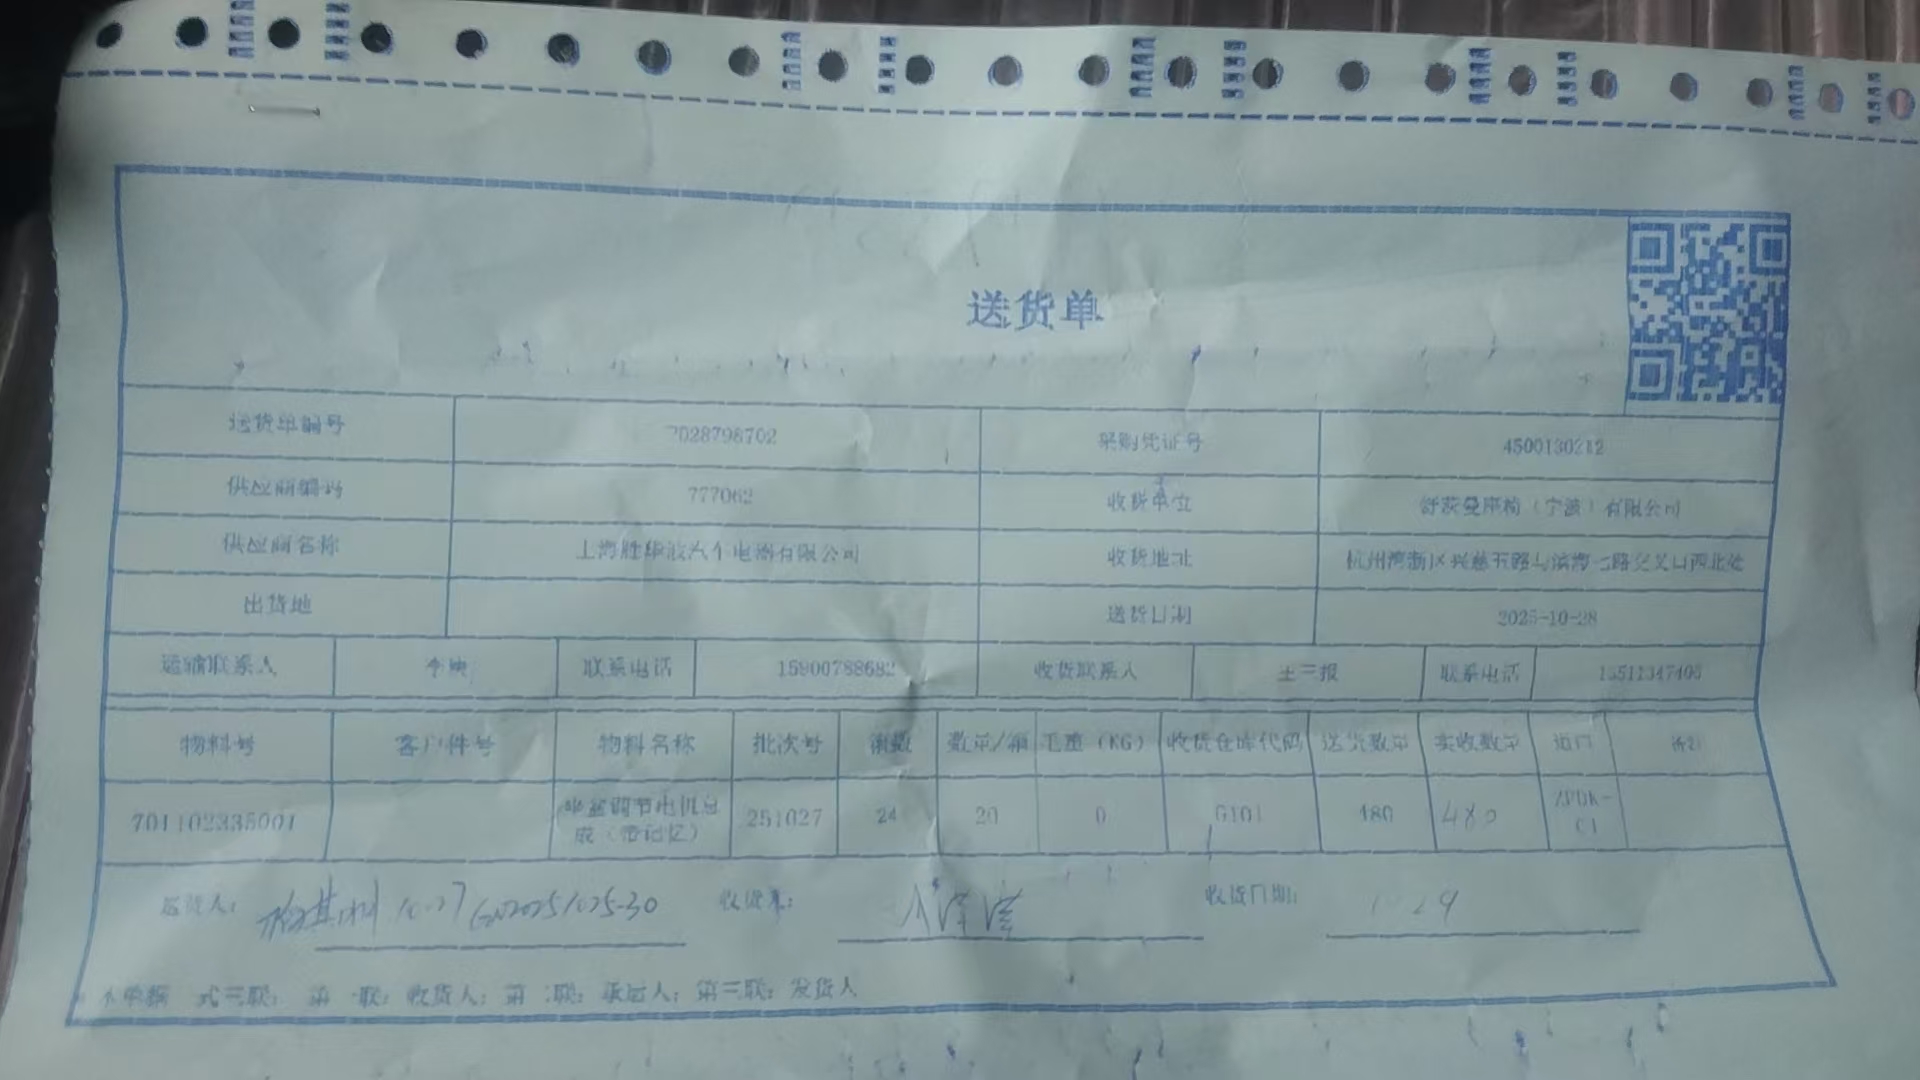 送货单
送货单编号 2028798702 采购凭证号 4500130212
供应商编码 777062 收货单位 舒茨曼座椅（宁波）有限公司
供应商名称 上海胜华波汽车电器有限公司 收货地址 杭州湾新区兴慈五路与滨海七路交叉口西北处
出货地 送货日期 2025-10-28
运输联系人 联系电话 15900788682 收货联系人 王三报 联系电话
物料号 客户件号 物料名称 批次号 箱数 数量/箱 毛重（KG） 收货仓库代码 送货数量 实收数量 道口 备注
701102335001 坐盆调节电机总成（带记忆） 251027 24 20 0 G101 480 480
送货人： 10-27 收货章： 收货日期： 10 29
本单据一式三联：第一联：收货人；第二联：承运人；第三联：发货人